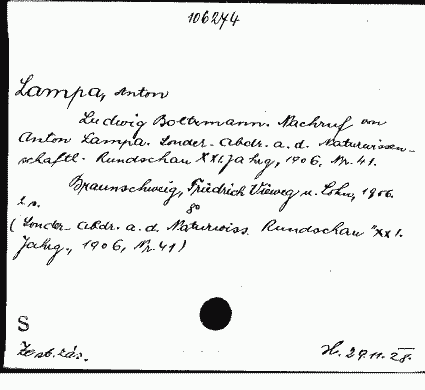 106274
Lampa, Anton
Ludwig Boltzmann. Nachruf von
Anton Lampa. Sonder-Abdr. a. d. Naturwissen-
schaftl. Rundschau XXI. Jahrg., 1906. Nr. 41.
Braunschweig, Friedrich Vieweg u. Sohn, 1906.
8°
(Sonder-Abdr. a. d. Naturwiss. Rundschau "XXI.
Jahrg., 1906, Nr. 41)
S